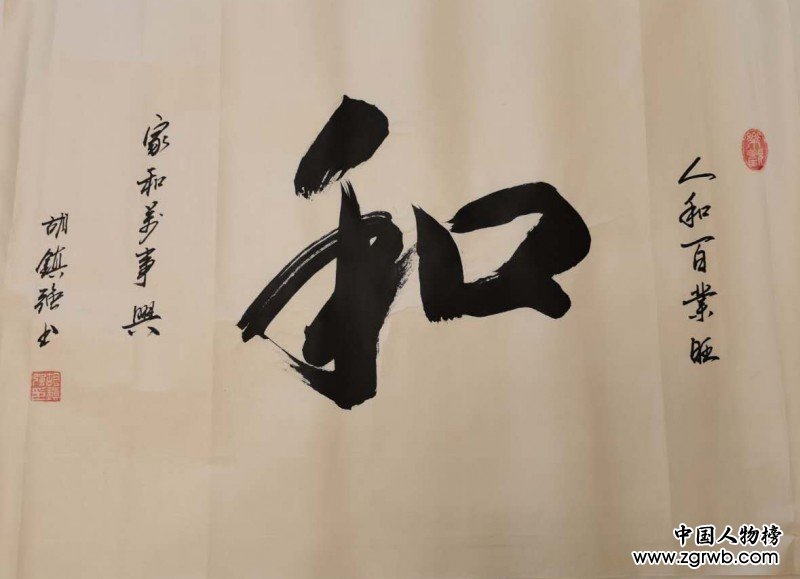 人和百業旺
和
家和萬事興
胡鎮強书
中国人物榜
www.zgrwb.com